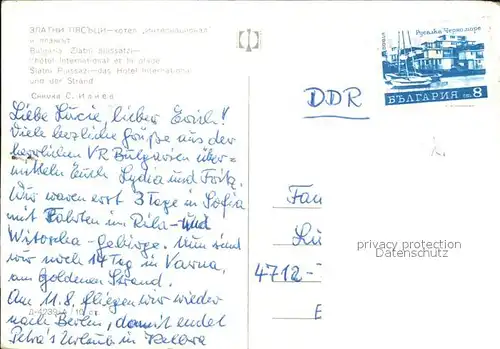 ЗЛАТНИ ПЯСЪЦИ—хотел „Интернационал"
и плажът
Bulgaria. Zlatni piassatzi—
l'hôtel International et la plage
Slatni Pjassazi—das Hotel International
und der Strand
Снимка С. Иочев
Liebe Lucie, lieber Erich!
Viele herzliche Grüße aus der
herrlichen VR Bulgarien über=
mitteln Euch Lydia und Fritz.
Wir waren erst 3 Tage in Sofia
mit Fahrten im Rila- und
Witoscha-Gebirge. Nun sind
wir noch 14 Tg in Varna,
am Goldenen Strand.
Am 11.8. fliegen wir wieder
nach Berlin, damit endet
Petra's Urlaub in Kelbra
Русалка Черноморе
БЪЛГАРИЯ ст. 8
DDR
Fam
Lu
4712-
privacy protection
Datenschutz